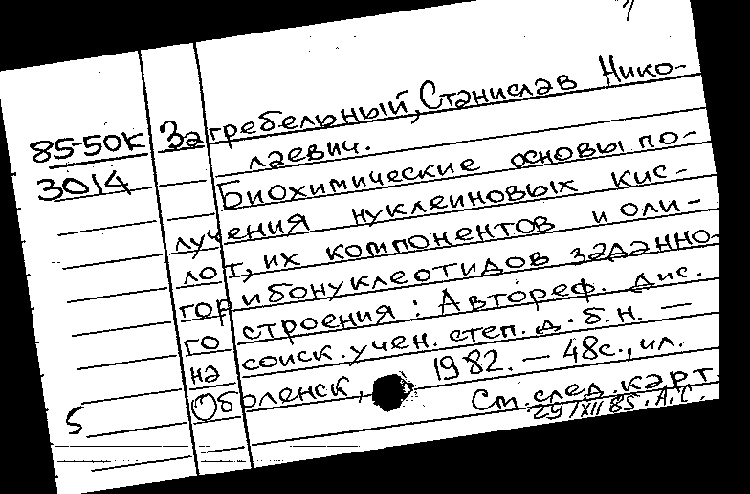 85-50К Загребельный, Станислав Нико-
3014 лаевич.
Биохимические основы по-
лучения нуклеиновых кис-
лот, их компонентов и оли-
горибонуклеотидов заданно-
го строения: Автореф. дис.
на соиск. учен. степ. д.б.н. —
Оболенск, 1982. — 48с., ил.
5 См. след. карт.
29/XII 85. А.С.